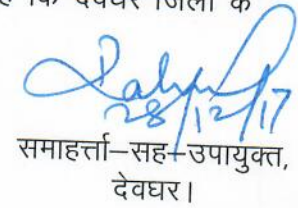 कि देवघर जिला के
28/12/17
समाहर्त्ता–सह–उपायुक्त,
देवघर।